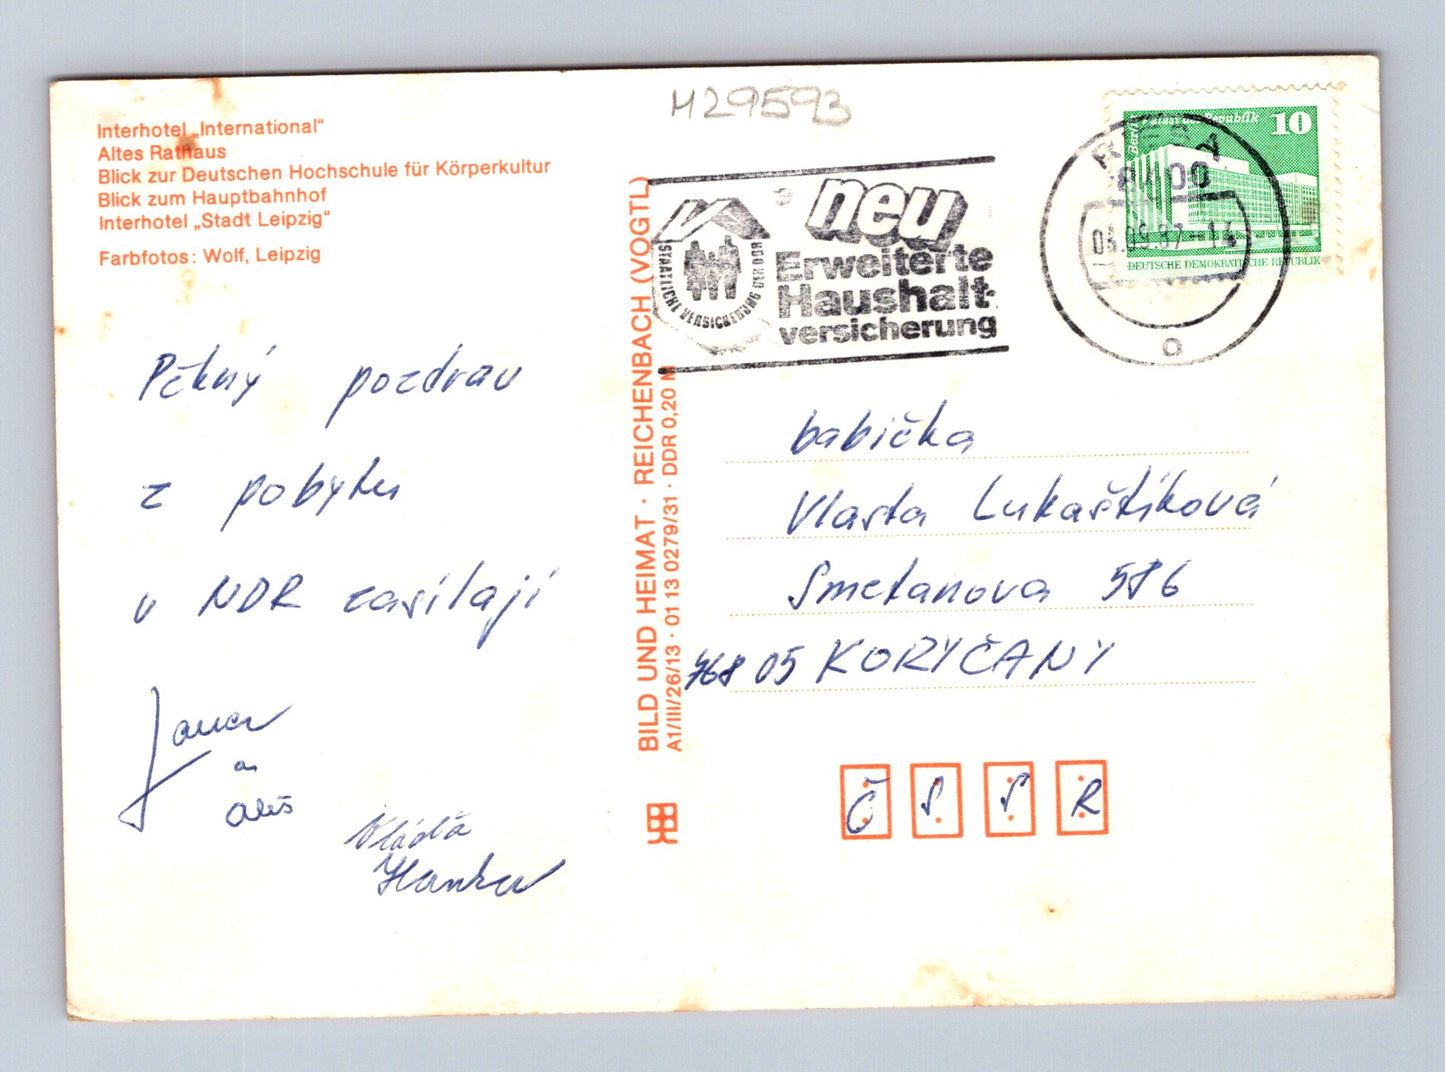 H29593
Interhotel „International“
Altes Rathaus
Blick zur Deutschen Hochschule für Körperkultur
Blick zum Hauptbahnhof
Interhotel „Stadt Leipzig“
Farbfotos: Wolf, Leipzig
Pěkný pozdrav
z pobytu
v NDR zasílají
Jana
a
Aleš
Vláďa
Hanka
BILD UND HEIMAT · REICHENBACH (VOGTL)
A1/III/26/13 · 01 13 0279/31 · DDR 0,20 M
STAATLICHE VERSICHERUNG DER DDR
neu
Erweiterte
Haushalt-
versicherung
RIESA
8400
-14
o
Berlin Palast der Republik 10
DEUTSCHE DEMOKRATISCHE REPUBLIK
babička
Vlasta Lukaštíková
Smetanova 586
768 05 KORYČANY
Č S S R